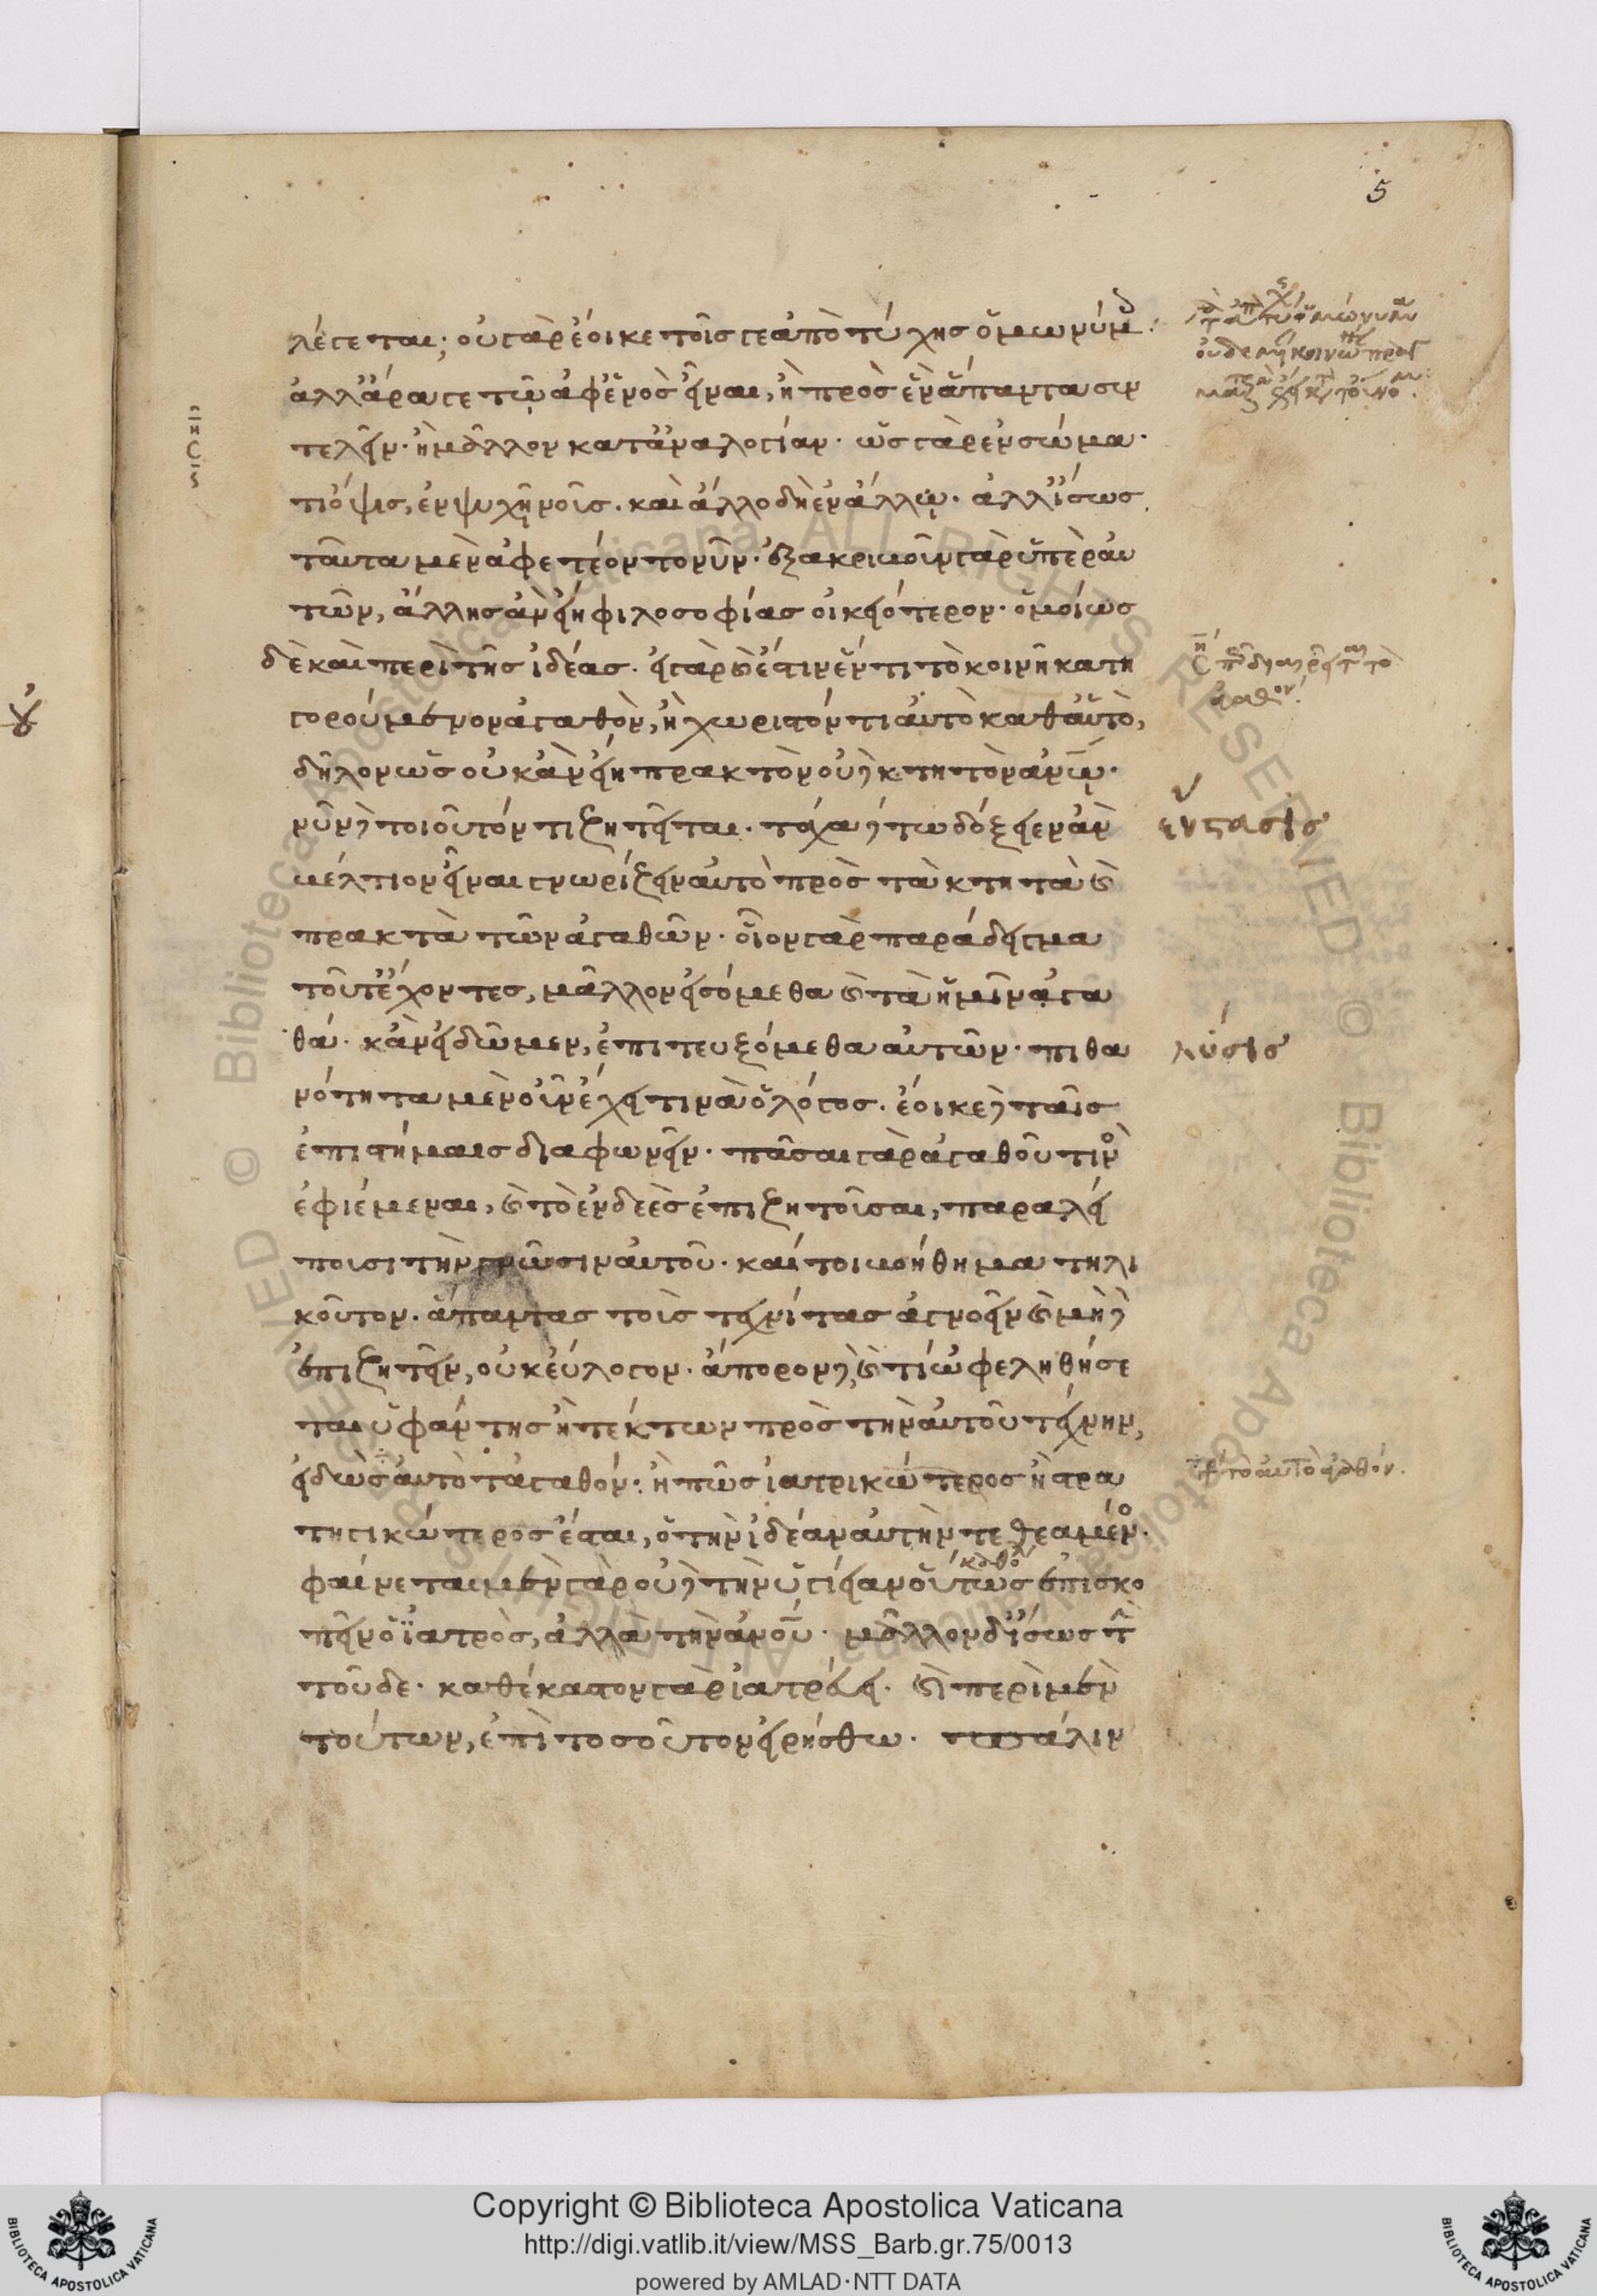 5
λέγεται; οὐ γὰρ ἔοικε τοῖς γε ἀπὸ τύχης ὁμωνύμοις·
ἀλλ' ἆρά γε τῷ ἀφ' ἑνὸς εἶναι, ἢ πρὸς ἓν ἅπαντα συν
τελεῖν· ἢ μᾶλλον κατ' ἀναλογίαν· ὡς γὰρ ἐν σώμα·
τι ὄψις, ἐν ψυχῇ νοῦς. καὶ ἄλλο δὴ ἐν ἄλλῳ. ἀλλ' ἴσως
ταῦτα μὲν ἀφετέον τονῦν· ἐξακριβοῦν γὰρ ὑπὲρ αὐ
τῶν, ἄλλης ἂν εἴη φιλοσοφίας οἰκειότερον· ὁμοίως
δὲ καὶ περὶ τῆς ἰδέας. εἰ γὰρ καὶ ἔστιν ἕν τι τὸ κοινῇ κατη
γορούμενον ἀγαθὸν, ἢ χωριστόν τι αὐτὸ καθ' αὑτὸ,
δῆλον ὡς οὐκ ἂν εἴη πρακτὸν οὐδὲ κτητὸν ἀνῳ·
νῦν δὲ τοιοῦτόν τι ζητεῖται. τάχα δέ τω δόξειεν ἂν
βέλτιον εἶναι γνωρίζειν αὐτὸ πρὸς τὰ κτητὰ καὶ
πρακτὰ τῶν ἀγαθῶν· οἷον γὰρ παράδειγμα
τοῦτ' ἔχοντες, μᾶλλον εἰσόμεθα καὶ τὰ ἡμῖν ἀγα
θά· κἂν εἰδῶμεν, ἐπιτευξόμεθα αὐτῶν· πιθα
νότητα μὲν οὖν ἔχει τινὰ ὁ λόγος. ἔοικε δὲ ταῖς
ἐπιστήμαις διαφωνεῖν· πᾶσαι γὰρ ἀγαθοῦ τινὸς
ἐφιέμεναι, καὶ τὸ ἐνδεὲς ἐπιζητοῦσαι, παραλεί
πουσι τὴν γνῶσιν αὐτοῦ· καίτοι βοήθημα τηλι
κοῦτον. ἅπαντας τοὺς τεχνίτας ἀγνοεῖν καὶ μὴ δὲ
ἐπιζητεῖν, οὐκ εὔλογον. ἄπορον δὲ, καὶ τί ὠφεληθήσε
ται ὑφάντης ἢ τέκτων πρὸς τὴν αὑτοῦ τέχνην,
εἰδὼς αὐτὸ τἀγαθόν· ἢ πῶς ἰατρικώτερος ἢ στρα
τηγικώτερος ἔσται, ὁ τὴν ἰδέαν αὐτὴν τεθεαμένος·
φαίνεται μὲν γὰρ οὐδὲ τὴν ὑγίειαν οὕτως ἐπισκο
πεῖν ὁ ἰατρὸς, ἀλλὰ τὴν ἀνοῦ· μᾶλλον δ' ἴσως τὴν
τοῦδε· καθ' ἕκαστον γὰρ ἰατρεύει. καὶ περὶ μὲν
τούτων, ἐπὶ τοσοῦτον εἰρήσθω. πάλιν
ἔνστασις
λύσις
Copyright © Biblioteca Apostolica Vaticana
http://digi.vatlib.it/view/MSS_Barb.gr.75/0013
powered by AMLAD·NTT DATA
BIBLIOTECA APOSTOLICA VATICANA
BIBLIOTECA APOSTOLICA VATICANA